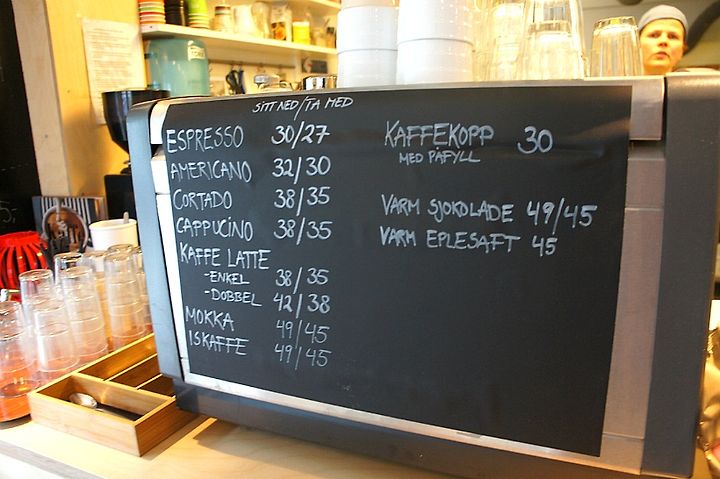 SITT NED/TA MED
ESPRESSO 30/27
AMERICANO 32/30
CORTADO 38/35
CAPPUCINO 38/35
KAFFE LATTE
-ENKEL 38/35
-DOBBEL 42/38
MOKKA 49/45
ISKAFFE 49/45
KAFFEKOPP 30
MED PÅFYLL
VARM SJOKOLADE 49/45
VARM EPLESAFT 45